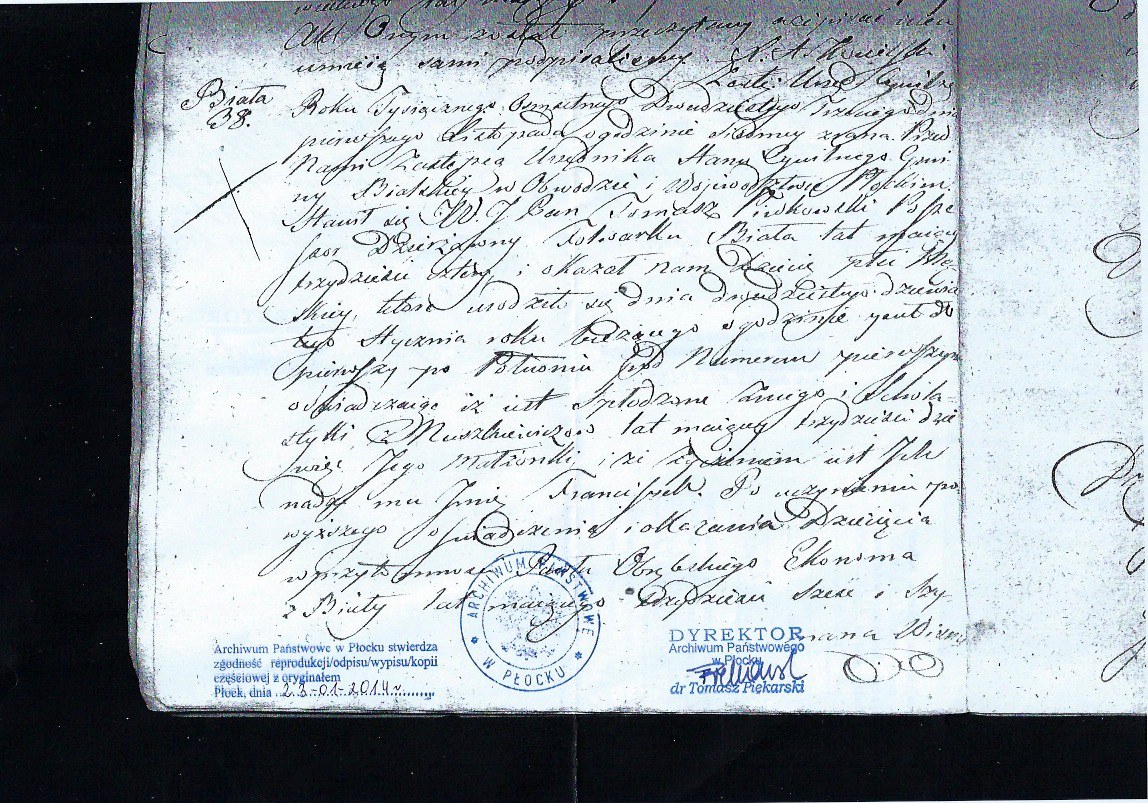 Akt Ninieyszy został przeczytany a zpisać nieu
umieią sami podpisaliśmy
Biała
38.
Roku Tysiącznego Osmsetnego Dwudziestego Trzeciego dnia
pierwszego Listopada o godzinie siódmey zrana. Przed
Nami Zastępcą Urzędnika Stanu Cywilnego Gmi
ny Bialskiey w Obwodzie i Woiewództwie Płockim
Stawił się W. J. Pan Tomasz Piwkowski Posse
ssor Dzierżawny Folwarku Biała lat maiący
trzydzieści cztery i okazał nam Dziecię płci Mę
skiey, które urodziło się dnia dwudziestego dziewią
tego Stycznia roku bieżącego o godzinie
pierwszy po Południu pod Numerem pierwszym
oświadczaiąc iż iest Spłodzone z niego i Schola-
styki z Muszkiewiczów lat maiącey trzydzieści dzie
więć Jego Małżonki, i że życzeniem iest Jch
nadać mu Jmię Franciszek. Po uczynieniu po
wyższego oświadczenia i okazania Dziecięcia
w przytomności Obrębskiego Ekonoma
z Biały lat maiącego trzydzieści Sześć i Szy-
mana
ARCHIWUM PAŃSTWOWE
W PŁOCKU
Archiwum Państwowe w Płocku stwierdza
zgodność reprodukcji/odpisu/wypisu/kopii
częściowej z oryginałem
Płock, dnia 23-01-2014 r.
DYREKTOR
Archiwum Państwowego
w Płocku
dr Tomasz Piekarski